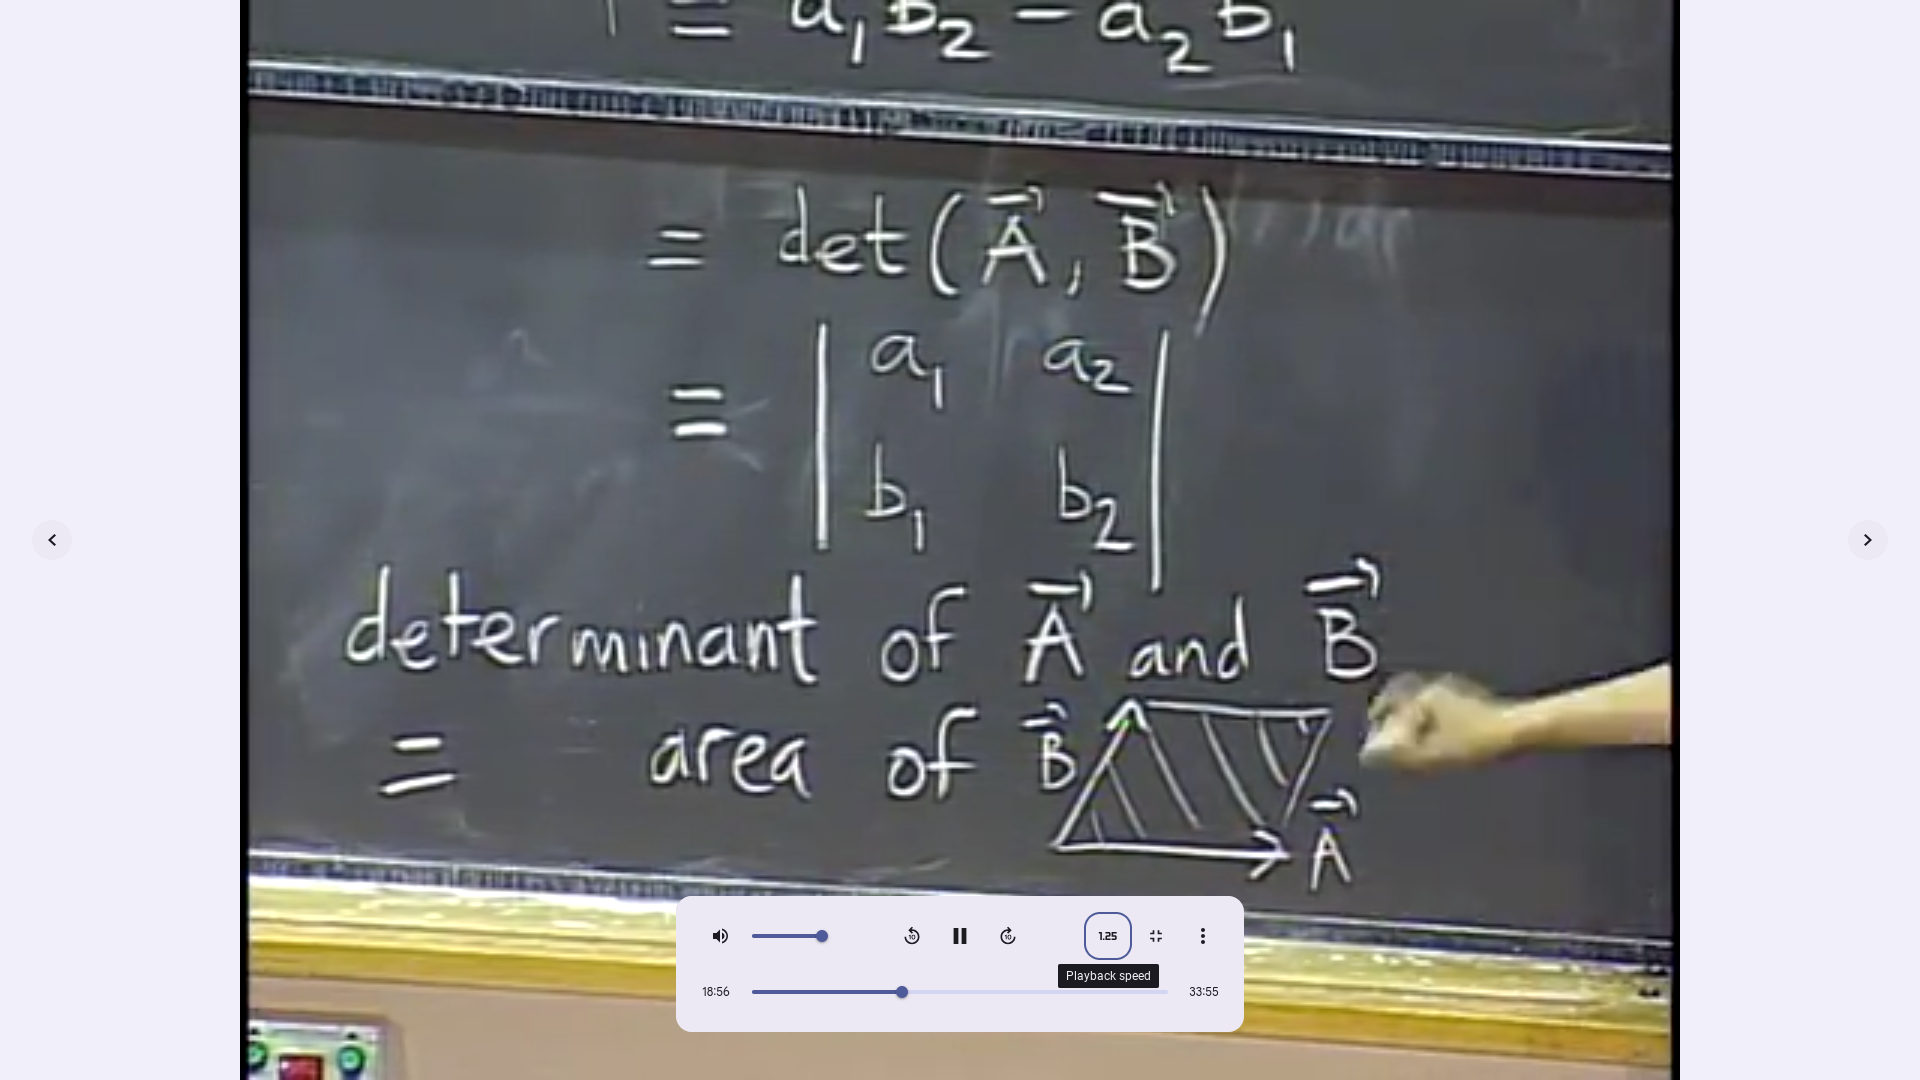 = a₁b₂ - a₂b₁
= det(A⃗, B⃗)
= | a₁ a₂ |
| b₁ b₂ |
determinant of A⃗ and B⃗
= area of B⃗
A⃗
1.25
Playback speed
18:56
33:55